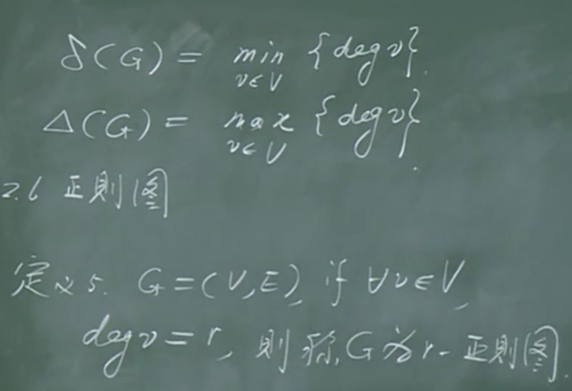 δ(G) = min {deg v}.
v∈V
Δ(G) = max {deg v}.
v∈V
2.6 正则图
定义5. G=(V,E), if ∀v∈V,
deg v = r, 则称G为r-正则图.